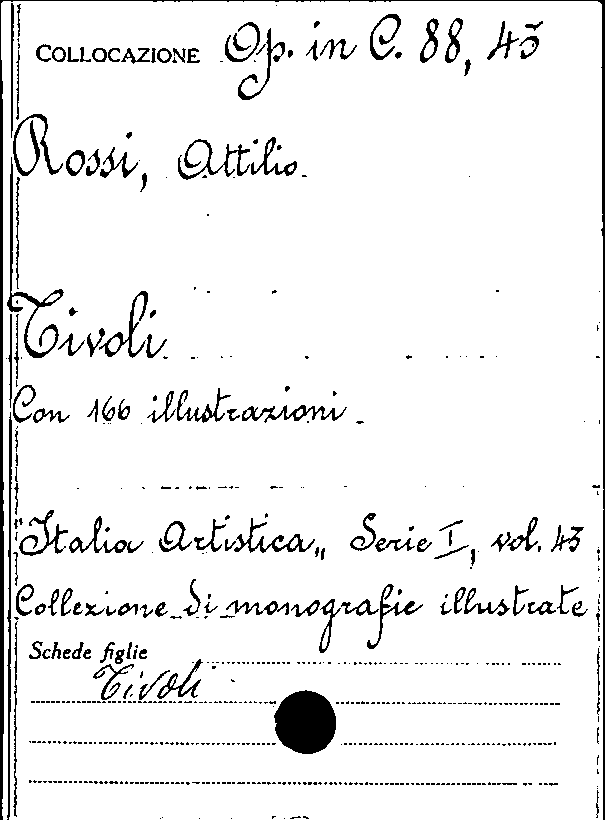 COLLOCAZIONE Op. in C. 88, 43
Rossi, Attilio
Tivoli
Con 166 illustrazioni
"Italia Artistica„ Serie I, vol. 43
Collezione di monografie illustrate
Schede figlie
Tivoli